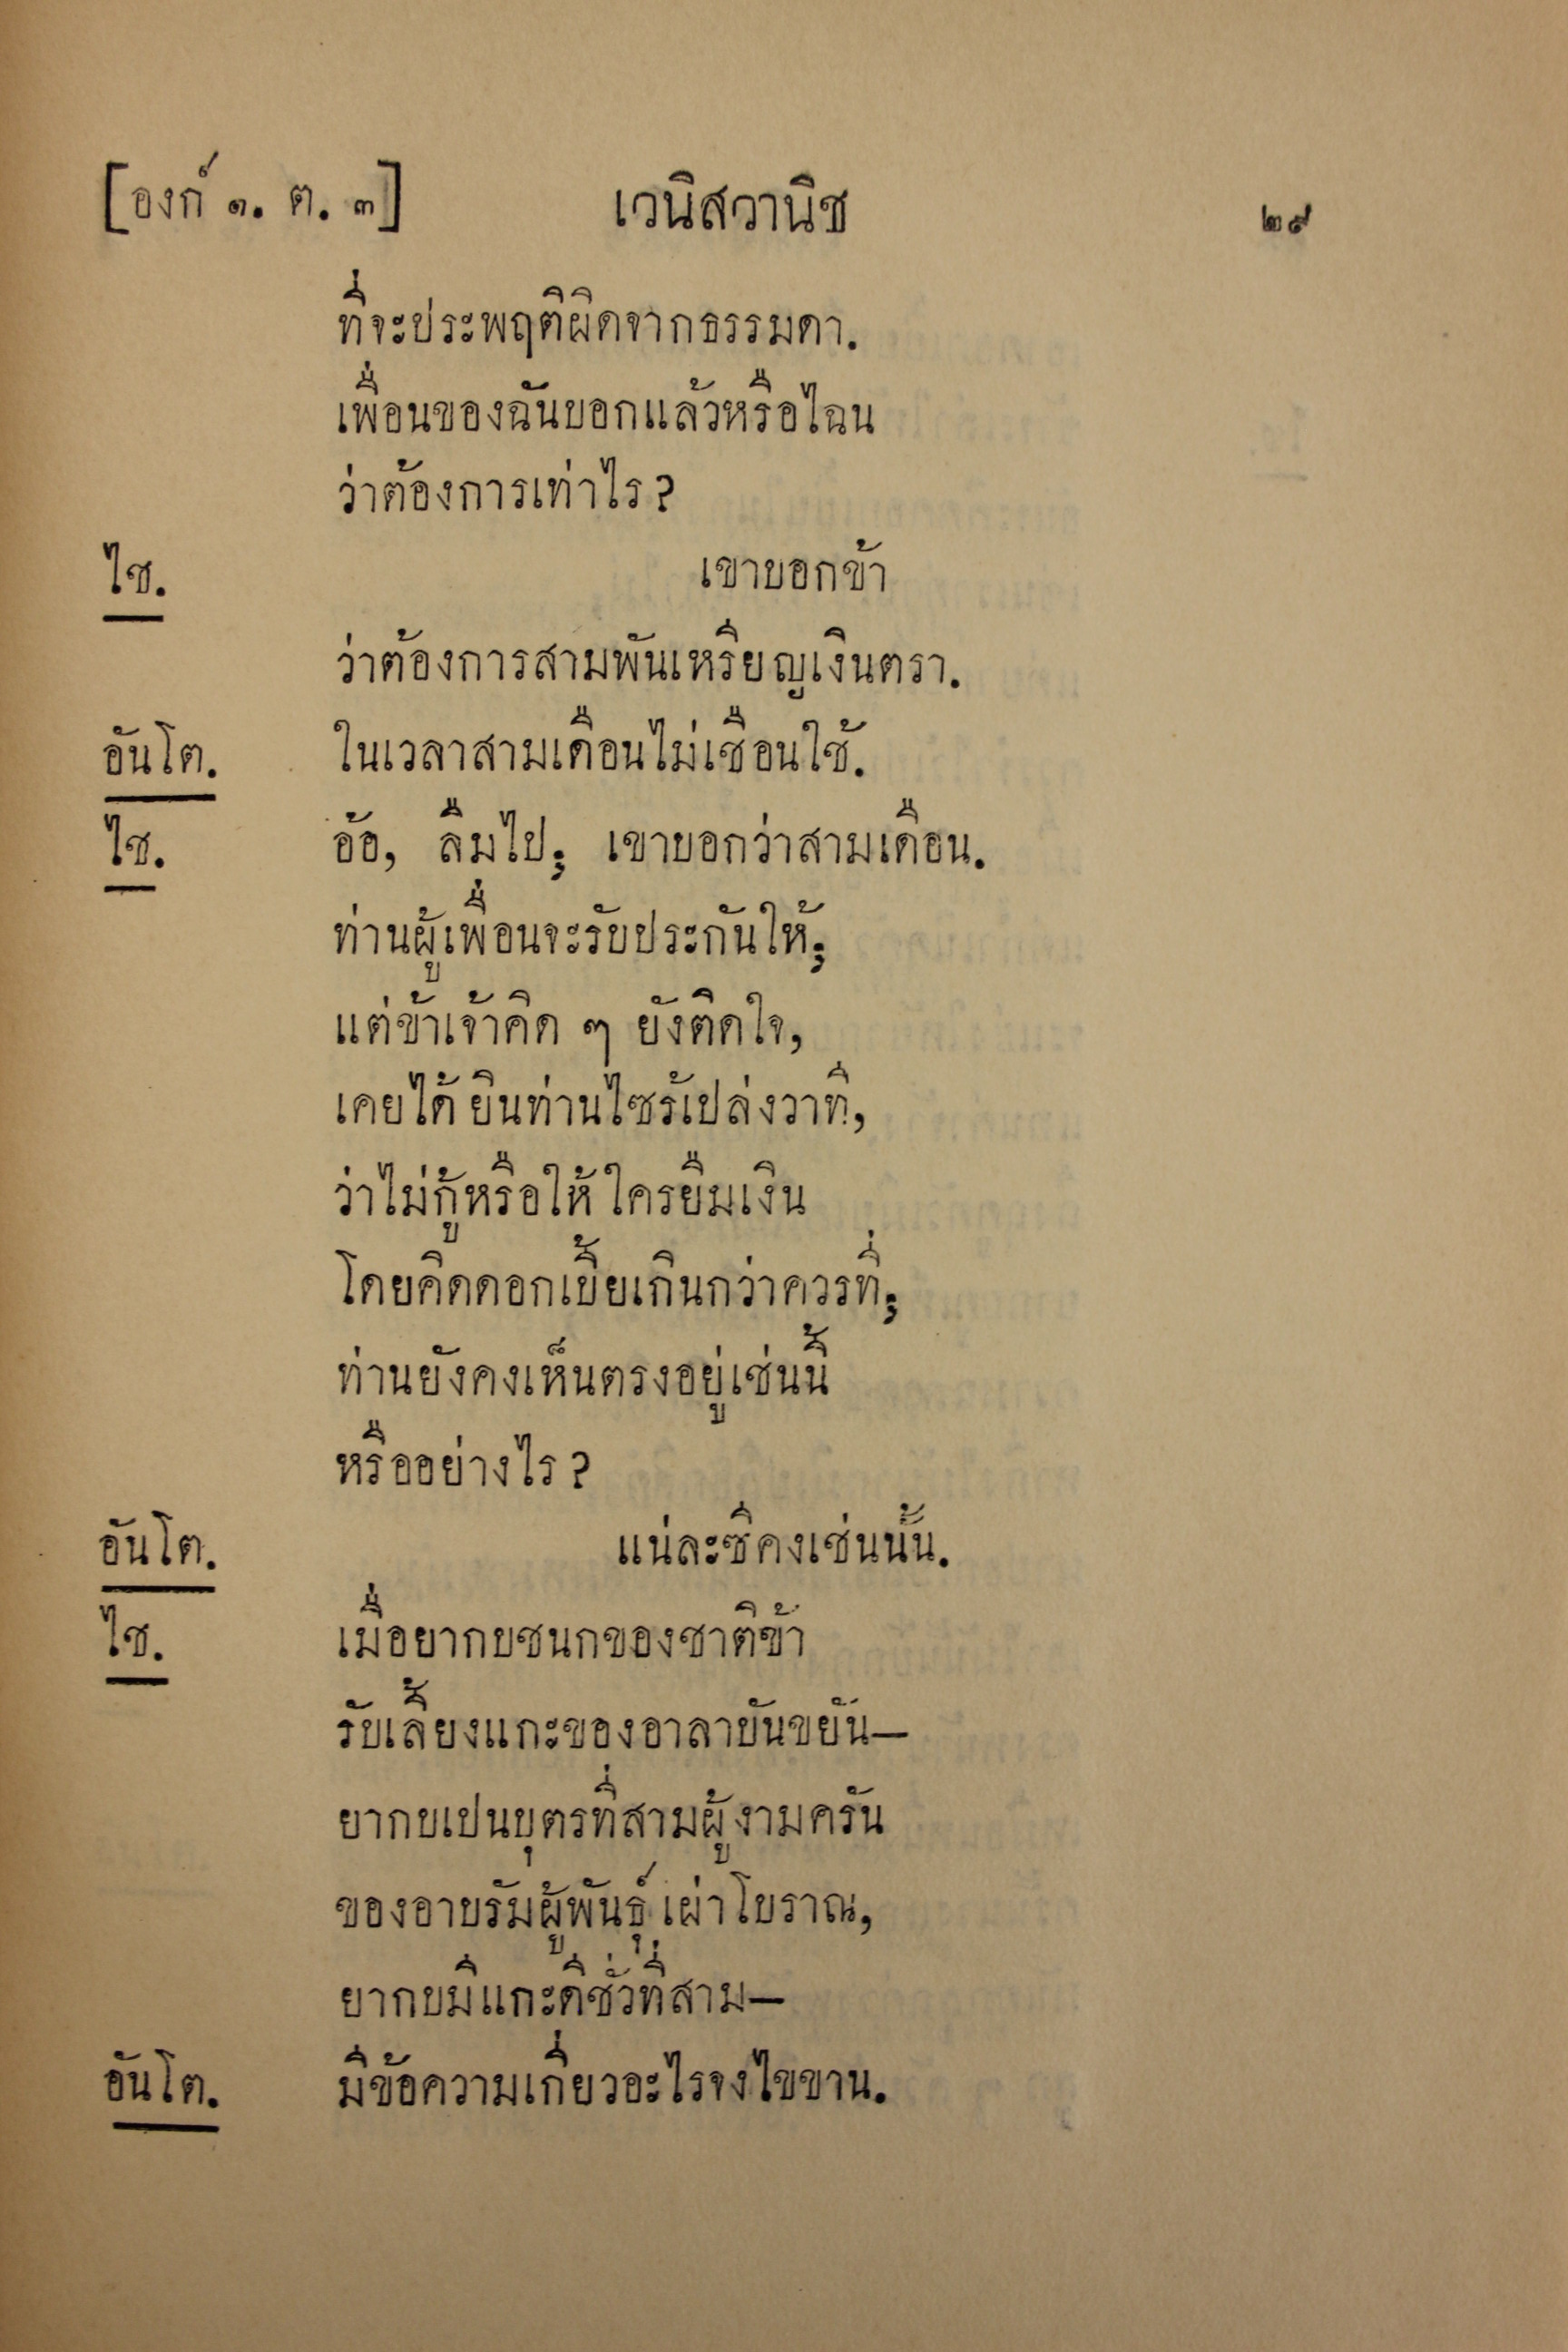 [องก์ ๑. ต. ๓] เวนิสวานิช ๒๙
ที่จะประพฤติผิดจากธรรมดา.
เพื่อนของฉันบอกแล้วหรือไฉน
ว่าต้องการเท่าไร?
ไช. เขาบอกข้า
ว่าต้องการสามพันเหรียญเงินตรา.
อันโต. ในเวลาสามเดือนไม่เชือนใช้.
ไช. อ้อ, ลืมไป; เขาบอกว่าสามเดือน.
ท่านผู้เพื่อนจะรับประกันให้;
แต่ข้าเจ้าคิด ๆ ยังติดใจ,
เคยได้ยินท่านไซร้เปล่งวาที,
ว่าไม่กู้หรือให้ใครยืมเงิน
โดยคิดดอกเบี้ยเกินกว่าควรที่;
ท่านยังคงเห็นตรงอยู่เช่นนี้
หรืออย่างไร?
อันโต. แน่ละซีคงเช่นนั้น.
ไช. เมื่อยากบชนกของชาติข้า
รับเลี้ยงแกะของอาลาบันขยัน—
ยากบเปนบุตรที่สามผู้งามครัน
ของอายรัมผู้พันธุ์เผ่าโบราณ,
ยากบมีแกะดีชั่วที่สาม—
อันโต. มีข้อความเกี่ยวอะไรจงไขขาน.